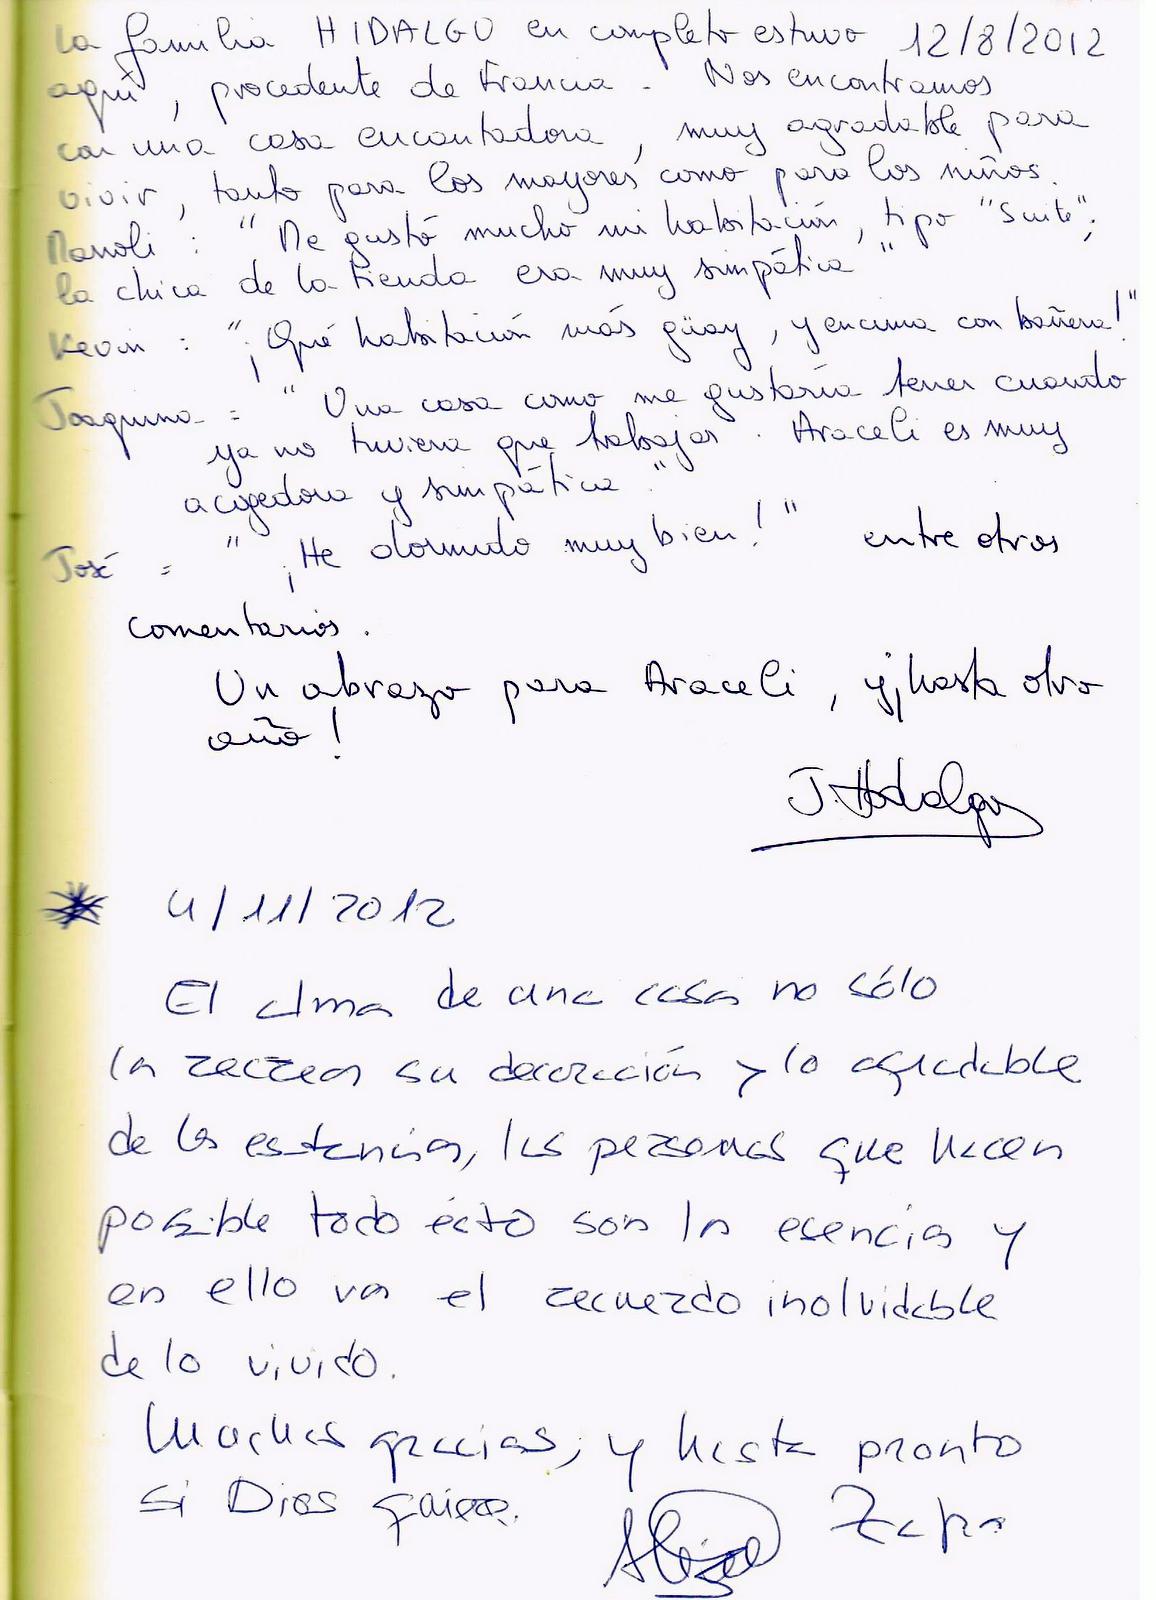 La familia HIDALGO en completo estuvo 12/8/2012
aquí, procedente de Francia. Nos encontramos
con una casa encantadora, muy agradable para
vivir, tanto para los mayores como para los niños.
Manoli : "Me gustó mucho mi habitación, tipo "Suite";
la chica de la tienda era muy simpática"
Kevin : "¡Qué habitación más güay, y encima con bañera!"
Joaquina = "Una casa como me gustaría tener cuando
ya no tuviera que trabajar. Araceli es muy
acogedora y simpática."
José = "¡He dormido muy bien!" entre otros
comentarios.
Un abrazo para Araceli, y ¡hasta otro
año!
J. Hidalgo
* 4/11/2012
El alma de una casa no sólo
la recrea su decoración y lo agradable
de la estancia, las personas que hacen
posible todo ésto son la esencia y
en ello va el recuerdo inolvidable
de lo vivido.
Muchas gracias, y hasta pronto
si Dios quiere.